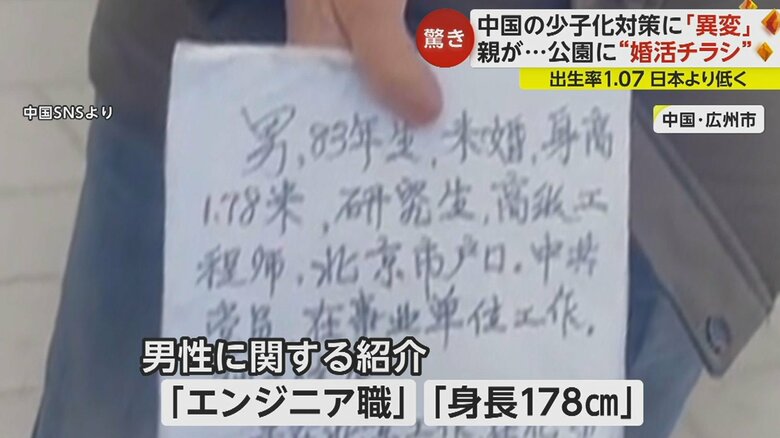 驚き
中国の少子化対策に「異変」
親が…公園に“婚活チラシ”
出生率1.07 日本より低く
中国SNSより
中国・広州市
男,83年生,未婚,身高
1.78米,研究生,高级工
程师,北京市户口.中共
党员,在事业单位工作.
男性に関する紹介
「エンジニア職」「身長178㎝」